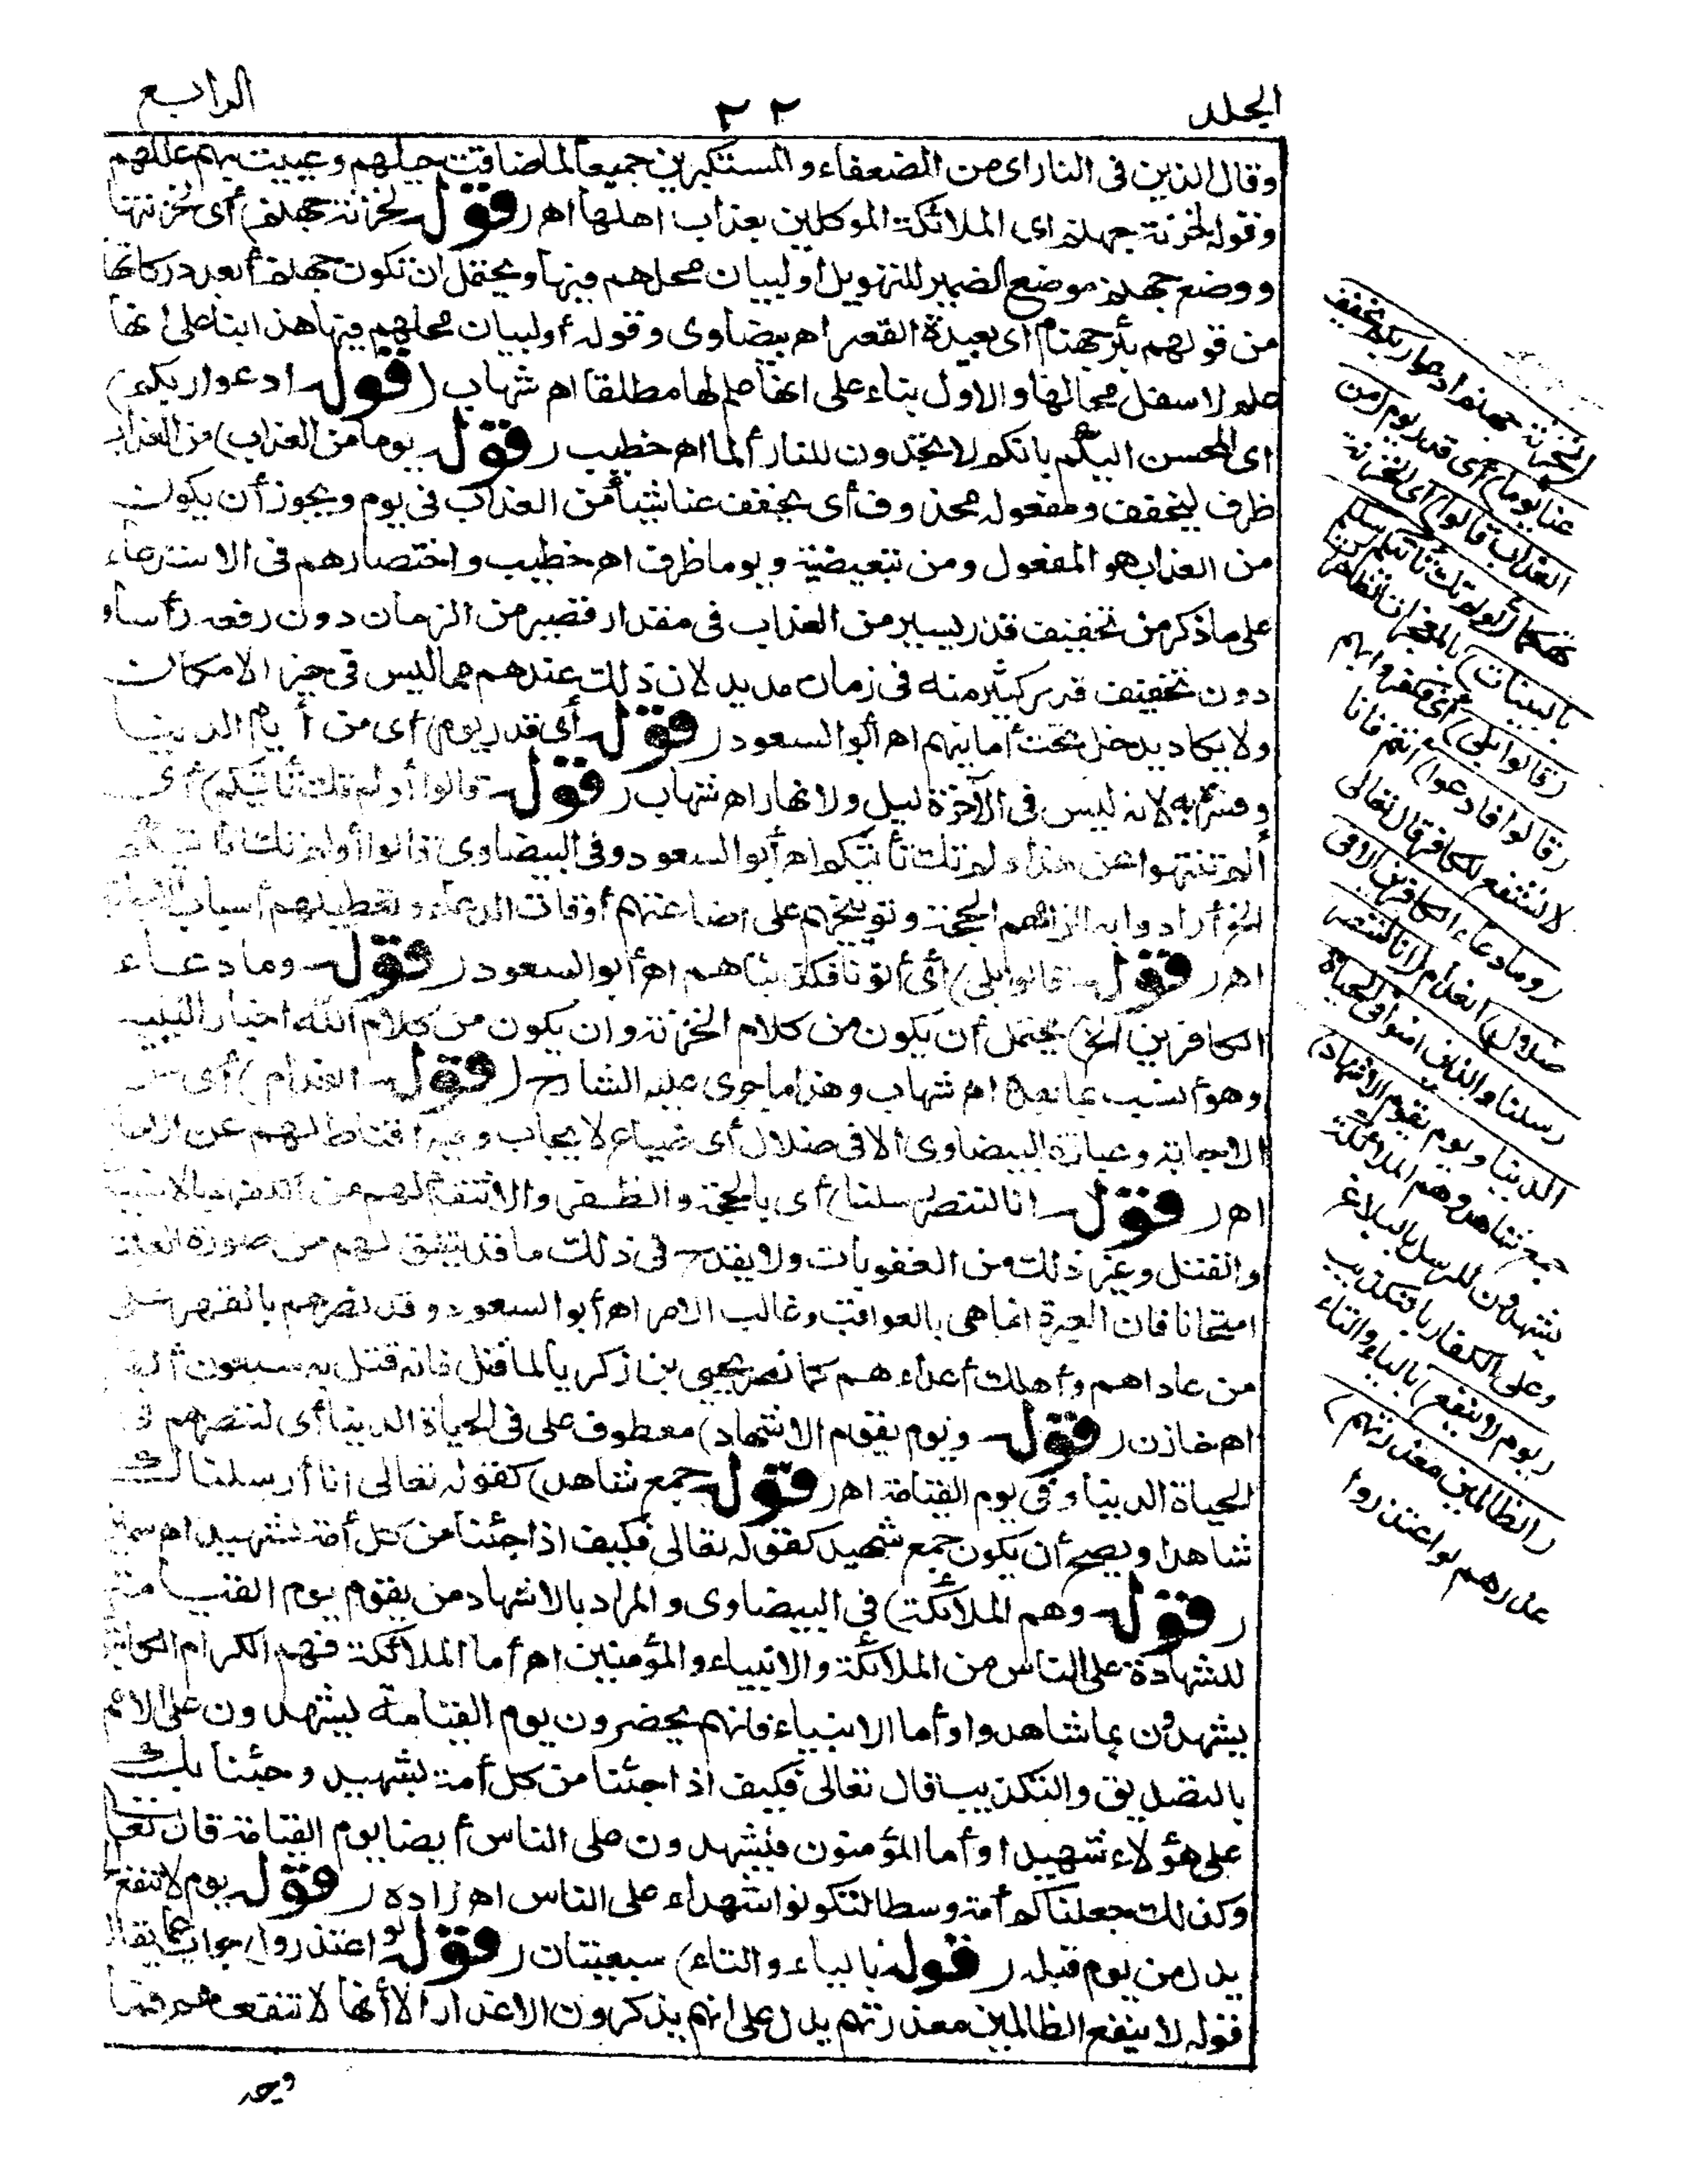 الجلد
٢٢
الرابع
وقال الذين فى النار اى من الضعفاء و المستكبرين جميعا لما ضاقت حيلهم وعييت بهم عللهم
وقوله لخزنة جهنم اى الملائكة الموكلين بعذاب اهلها اهر (قوله لخزنة جهنم) أى لخزنتها
و وضع جهنم موضع الضمير للتهويل او لبيان محلهم فيها ويحتمل ان تكون جهنم أبعد دركاتها
من قولهم بئر جهنام اى بعيدة القعر اهر بيضاوى وقوله أو لبيان محلهم فيها هذا بناء على انها
علم لاسفل محالها والاول بناء على انها علم لها مطلقا اهر شهاب (قوله ادعوا ربكم)
اى المحسن اليكم بانكم لا تجدون للنار ألما اهر خطيب (قوله يوما من العذاب) من العذاب
ظرف ليخفف ومفعوله محذوف أى يخفف عنا شيأ من العذاب فى يوم ويجوز أن يكون
من العذاب هو المفعول ومن تبعيضية ويوما ظرف اهر خطيب واختصارهم فى الاسترحاء
على ما ذكر من تخفيف قدر يسير من العذاب فى مقدار قصير من الزمان دون رفعه رأسا و
دون تخفيف قدر كثير منه فى زمان مديد لان ذلك عندهم مما ليس فى حيز الامكان
ولا يكاد يدخل تحت أمانيهم اهر ابو السعود (قوله أى قدر يوم) أى من أيام الدنيا
وفسر به لانه ليس فى الآخرة ليل ولا نهار اهر شهاب (قوله قالوا أولم تك تأتيكم) أى
ألم تنتهوا عن هذا ولم تك تأتيكم اهر أبو السعود وفى البيضاوى قالوا أولم تك تأتيكم
الخ أرادوا به الزامهم الحجة وتوبيخهم على اضاعتهم أوقات الدعاء وتعطيلهم أسباب الاجابة
اهر (قوله قالوا بلى) أى أتونا فكذبناهم اهر أبو السعود (قوله وما دعاء
الكافرين الخ) يحتمل أن يكون من كلام الخزنة وان يكون من كلام الله اخبار النبيه
وهو أنسب بما بعده اهر شهاب وهذا ما جرى عليه الشارح (قوله انعدام) أى من
الاجابة وعبارة البيضاوى الا فى ضلال أى ضياع لا يجاب وفيه اقناط لهم عن
اهر (قوله انا لننصر رسلنا) أى بالحجة والظفر والانتقام لهم من الكفرة بالاستئصال
والقتل وغير ذلك من العقوبات ولا يقدح فى ذلك ما قد يتفق لهم من صورة الغلبة
امتحانا فان العبرة انما هى بالعواقب وغالب الامر اهر أبو السعود وقد نصرهم بالقهر على
من عاداهم وأهلك أعداءهم كما نصر يحيى بن زكريا لما قتل فانه قتل به سبعون ألفا
اهر خازن (قوله ويوم يقوم الاشهاد) معطوف على فى الحياة الدنيا أى لننصرهم فى
الحياة الدنيا و فى يوم القيامة اهر (قوله جمع شاهد) كقوله تعالى انا أرسلناك
شاهدا ويصح أن يكون جمع شهيد كقوله تعالى فكيف اذا جئنا من كل أمة بشهيد اهر سمين
(قوله وهم الملائكة) فى البيضاوى والمراد بالاشهاد من يقوم يوم القيامة
للشهادة على الناس من الملائكة والانبياء والمؤمنين اهر أما الملائكة فهم الكرام الكاتبين
يشهدون بما شاهدوا وأما الانبياء فانهم يحضرون يوم القيامة يشهدون على الامم
بالتصديق والتكذيب قال تعالى فكيف اذا جئنا من كل أمة بشهيد وجئنا بك
على هؤلاء شهيدا وأما المؤمنون فيشهدون على الناس أيضا يوم القيامة قال تعالى
وكذلك جعلناكم أمة وسطا لتكونوا شهداء على الناس اهر زاده (قوله يوم لا ينفع
بدل من يوم قبله (قوله بالياء والتاء) سبعيتان (قوله لو اعتذروا) جواب عما يقال
قوله لا ينفع الظالمين معذرتهم يدل على انهم يذكرون الاعذار الا أنها لا تنفعهم فما
وجه
لخزنة جهنم ادعوا ربكم يخفف
عنا يوما) أى قدر يوم (من
العذاب قالوا) أى الخزنة
تهكما (أولم تك تأتيكم رسلكم
بالبينات) بالمعجزات الظاهرات
(قالوا بلى) أى فكفروا بهم
(قالوا فادعوا) أنتم فانا
لا نشفع لكافر قال تعالى
(وما دعاء الكافرين الا فى
ضلال) انعدام (انا لننصر
رسلنا والذين امنوا فى الحياة
الدنيا ويوم يقوم الاشهاد)
جمع شاهد وهم الملائكة
يشهدون للرسل بالبلاغ
وعلى الكفار بالتكذيب
(يوم لا ينفع) بالياء والتاء
(الظالمين معذرتهم)
عذرهم لو اعتذروا